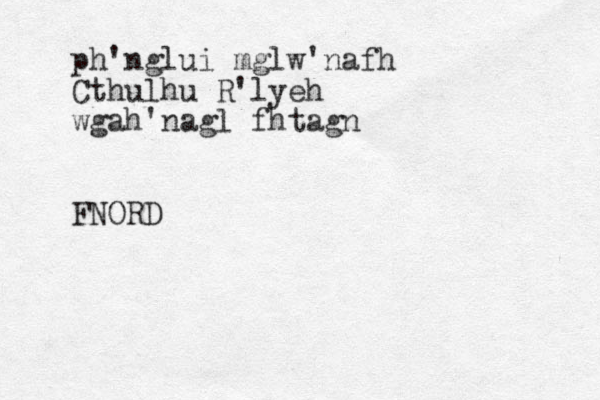 ph'nglui mglw'nafh
Cthulhu R'lyeh
wgah'nagl fhtagn
FNORD